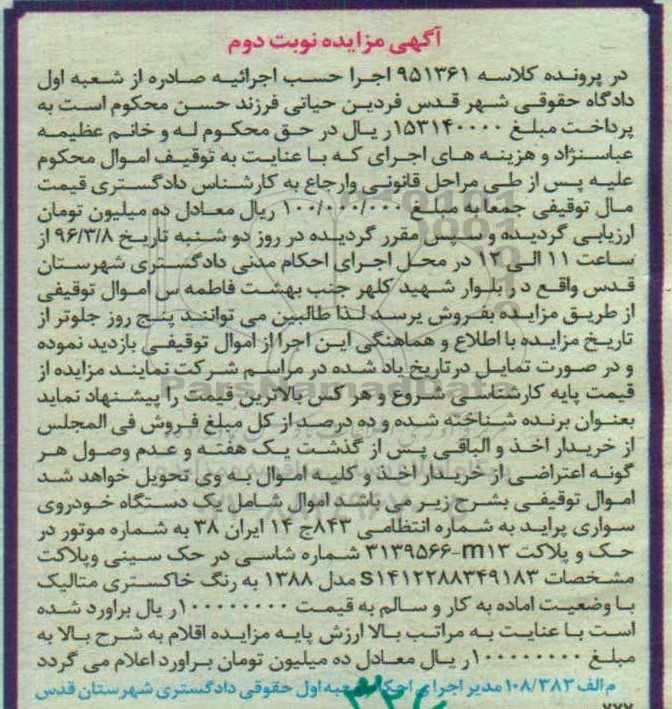 آگهی مزایده نوبت دوم
در پرونده کلاسه ۹۵۱۳۶۱ اجرا حسب اجرائیه صادره از شعبه اول
دادگاه حقوقی شهر قدس فردین حیاتی فرزند حسن محکوم است به
پرداخت مبلغ ۱۵۳۱۴۰۰۰۰ر یال در حق محکوم له و خانم عظیمه
عباسنژاد و هزینه های اجرای که با عنایت به توقیف اموال محکوم
علیه پس از طی مراحل قانونی وارجاع به کارشناس دادگستری قیمت
مال توقیفی جمعا به مبلغ ۱۰۰/۰۰۰/۰۰۰ ریال معادل ده میلیون تومان
ارزیابی گردیده و سپس مقرر گردیده در روز دو شنبه تاریخ ۹۶/۳/۸ از
ساعت ۱۱ الی ۱۲ در محل اجرای احکام مدنی دادگستری شهرستان
قدس واقع در بلوار شهید کلهر جنب بهشت فاطمه س اموال توقیفی
از طریق مزایده بفروش برسد لذا طالبین می توانند پنج روز جلوتر از
تاریخ مزایده با اطلاع و هماهنگی این اجرا از اموال توقیفی بازدید نموده
و در صورت تمایل در تاریخ یاد شده در مراسم شرکت نمایند مزایده از
قیمت پایه کارشناسی شروع و هر کس بالاترین قیمت را پیشنهاد نماید
بعنوان برنده شناخته شده و ده درصد از کل مبلغ فروش فی المجلس
از خریدار اخذ و الباقی پس از گذشت یک هفته و عدم وصول هر
گونه اعتراضی از خریدار اخذ و کلیه اموال به وی تحویل خواهد شد
اموال توقیفی بشرح زیر می باشد اموال شامل یک دستگاه خودروی
سواری پراید به شماره انتظامی ۸۴۳ج ۱۴ ایران ۳۸ به شماره موتور در
حک و پلاکت m۱۳-۳۱۳۹۵۶۶ شماره شاسی در حک سینی وپلاکت
مشخصات s۱۴۱۲۲۸۸۳۴۹۱۸۳ مدل ۱۳۸۸ به رنگ خاکستری متالیک
با وضعیت اماده به کار و سالم به قیمت ۱۰۰۰۰۰۰۰۰ر یال براورد شده
است با عنایت به مراتب بالا ارزش پایه مزایده اقلام به شرح بالا به
مبلغ ۱۰۰۰۰۰۰۰۰ر یال معادل ده میلیون تومان براورد اعلام می گردد
م الف ۱۰۸/۳۸۳ مدیر اجرای احکام شعبه اول حقوقی دادگستری شهرستان قدس
ParsNamadData